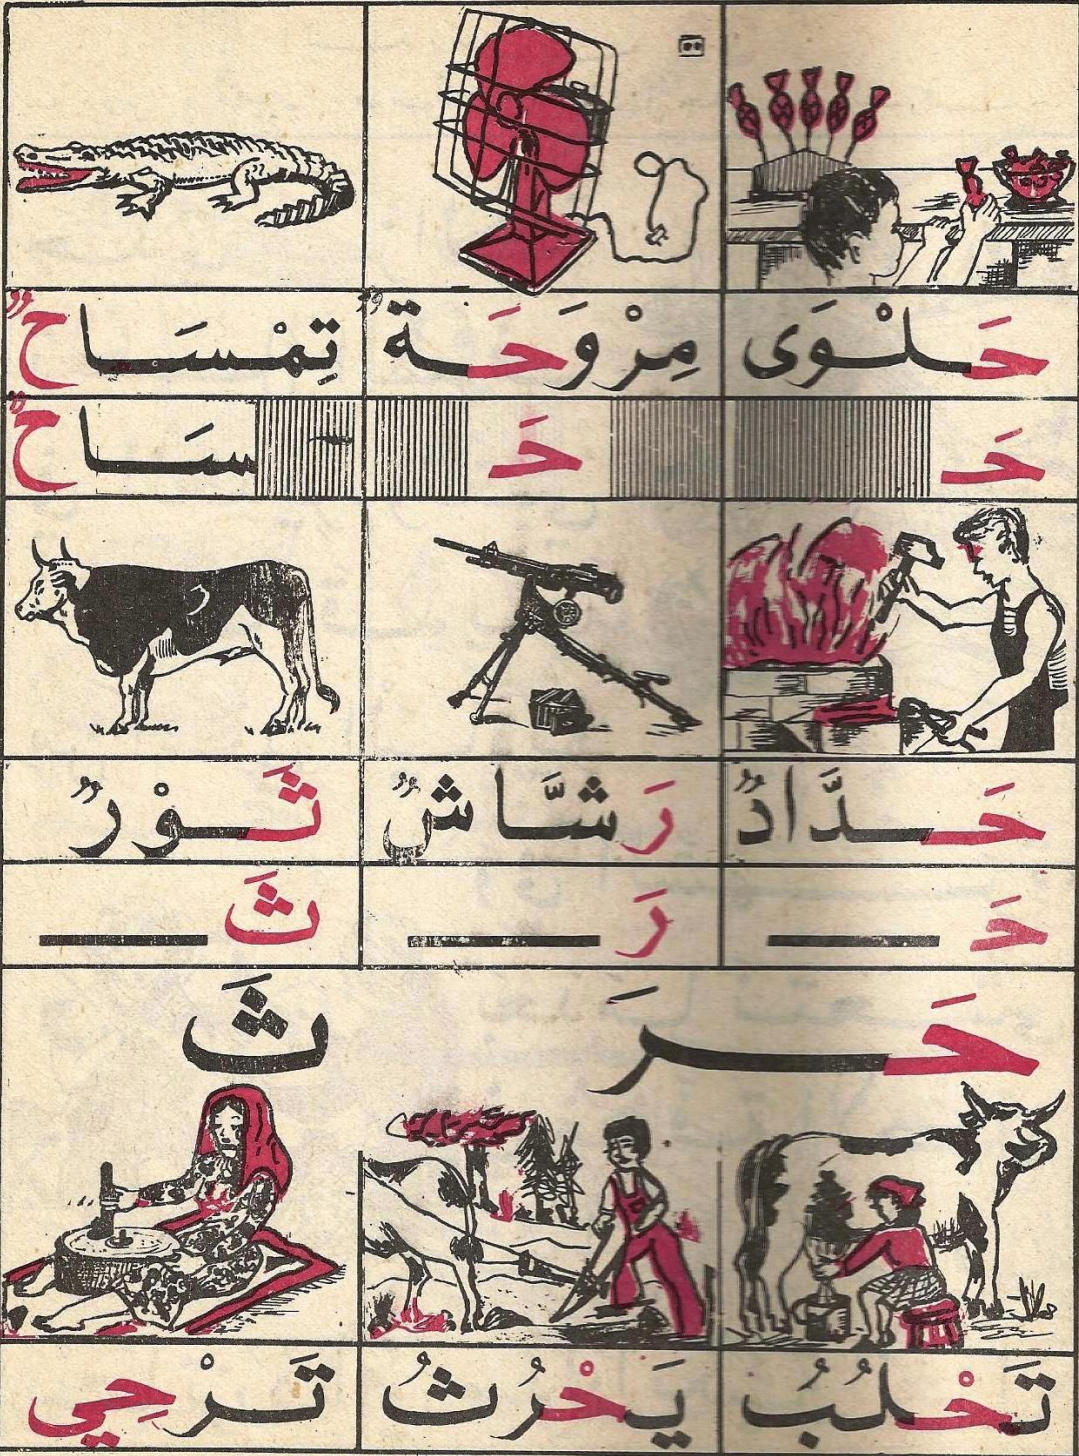 حَلْوَى مِرْوَحَةٌ تِمْسَاحٌ
حَـ حَـ سَاحٌ
حَدَّادٌ رَشَّاشٌ ثَوْرٌ
حَـ رَ ثَ
حَرَ ثَ
تَحْلُبُ يَحْرُثُ تَرْحِي